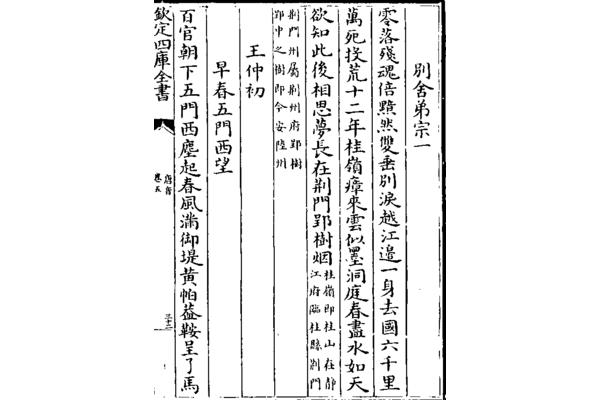 別舍弟宗一
零落殘魂倍黯然雙垂別淚越江邊一身去國六千里
萬死投荒十二年桂嶺瘴來雲似墨洞庭春盡水如天
欲知此後相思夢長在荆門郢樹烟
桂嶺即桂山在靜
江府臨桂縣荆門
荆門州屬荆州府郢樹
郢中之樹即今安陸州
王仲初
早春五門西望
百官朝下五門西塵起春風滿御堤黄帕葢鞍呈了馬
欽定四庫全書
唐音
卷五